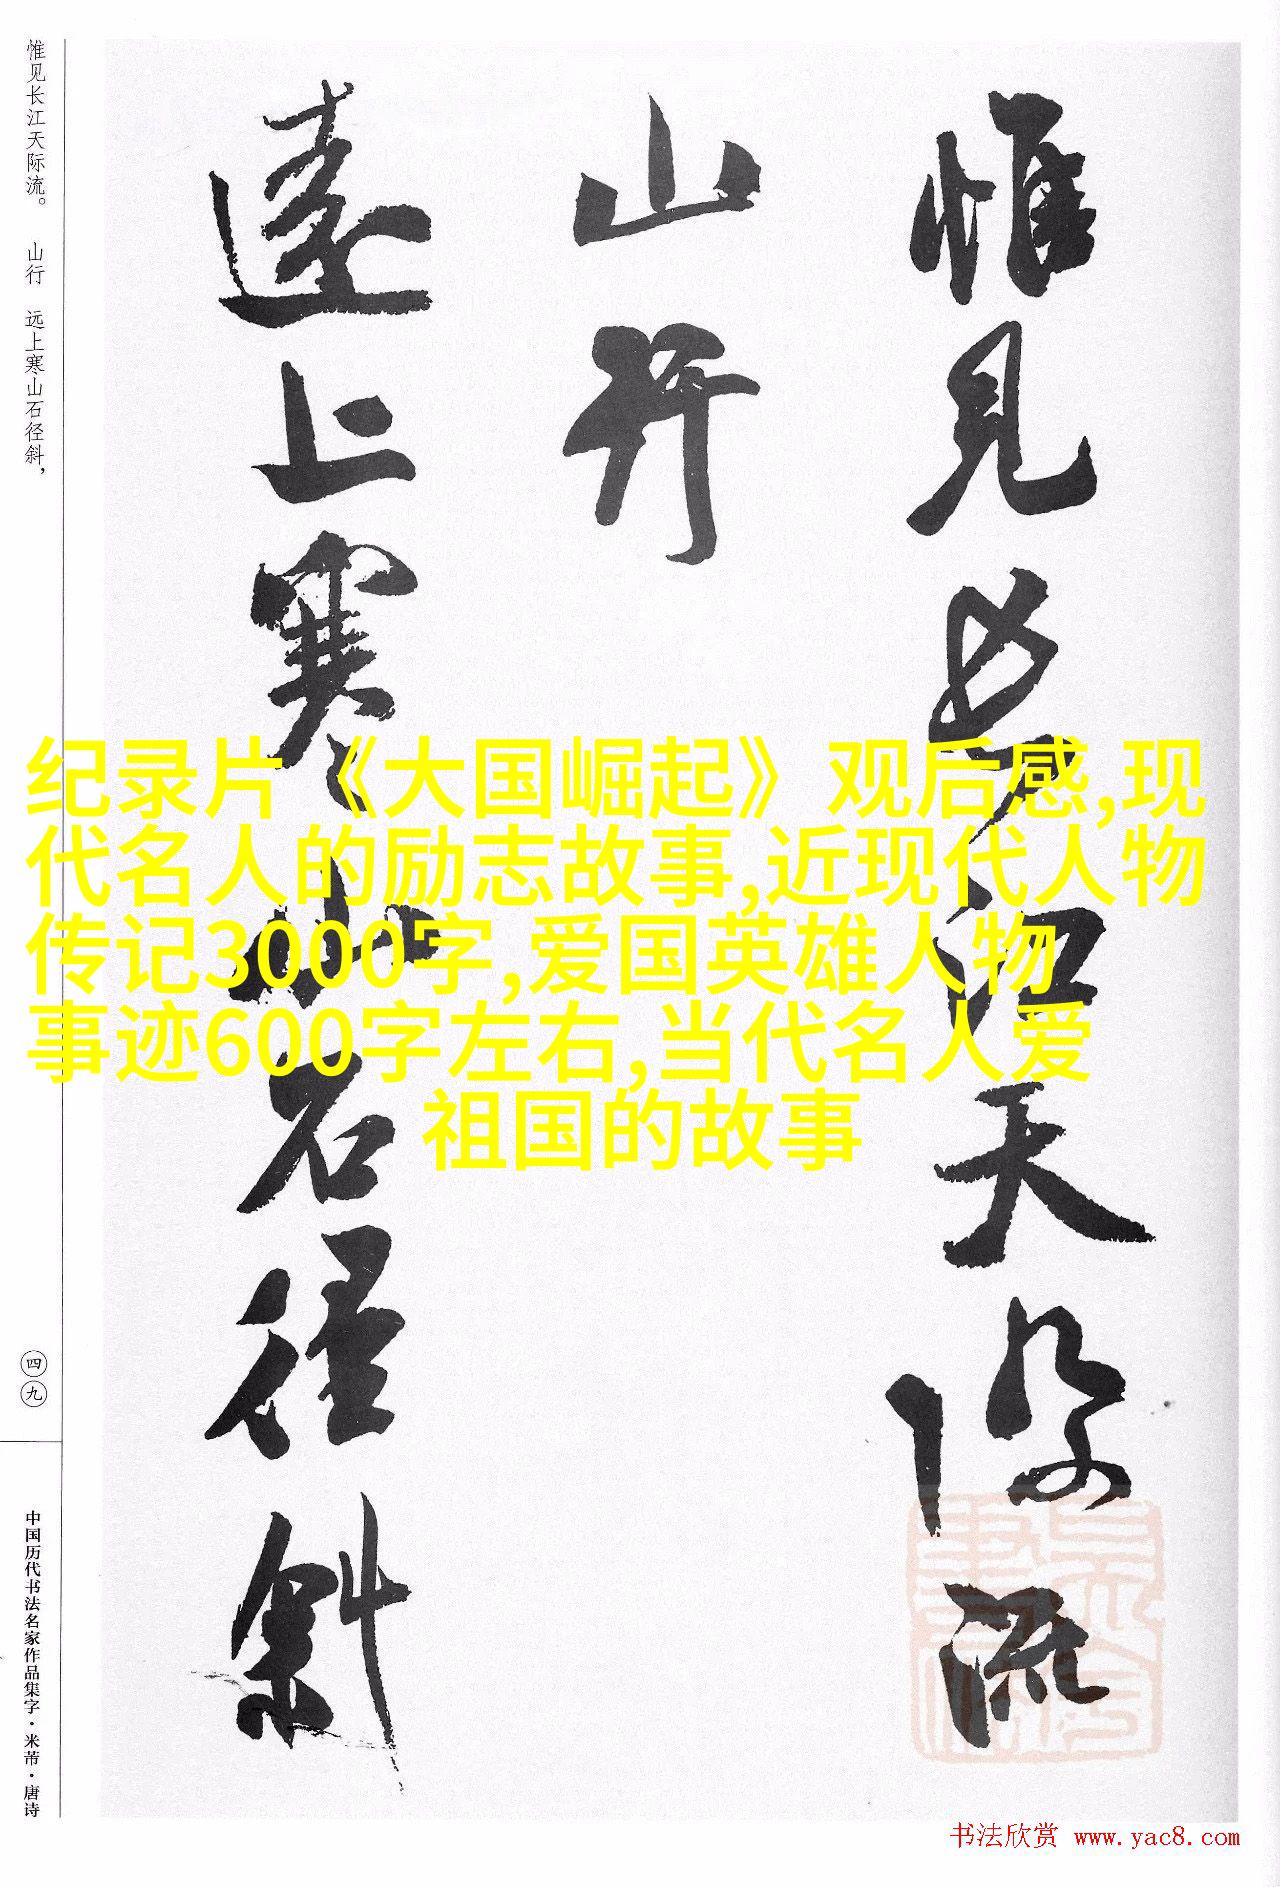 惟见长江天际流
山行
远上寒山石径斜
惟见长江天际流。 山行 远上寒山石径斜，
四九
中国历代书法名家作品集字·米芾·唐诗
纪录片《大国崛起》观后感,现
代名人的励志故事,近现代人物
传记3000字,爱国英雄人物
事迹600字左右,当代名人爱
祖国的故事
书法欣赏 www.yac8.com